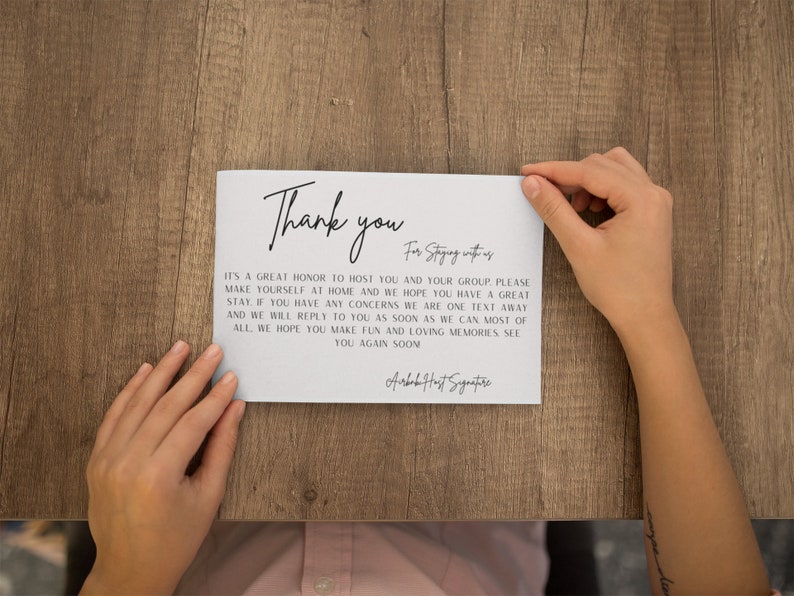 Thank you
For Staying with us
IT'S A GREAT HONOR TO HOST YOU AND YOUR GROUP. PLEASE
MAKE YOURSELF AT HOME AND WE HOPE YOU HAVE A GREAT
STAY. IF YOU HAVE ANY CONCERNS WE ARE ONE TEXT AWAY
AND WE WILL REPLY TO YOU AS SOON AS WE CAN. MOST OF
ALL, WE HOPE YOU MAKE FUN AND LOVING MEMORIES. SEE
YOU AGAIN SOON!
Airbnb Host Signature